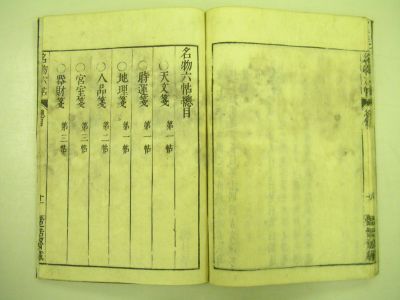 名物六帖總目
○天文箋 第一帖
○時運箋 第一帖
○地理箋 第一帖
○人品箋 第二帖
○宮室箋 第三帖
○器財箋 第三帖
名物六帖 總目